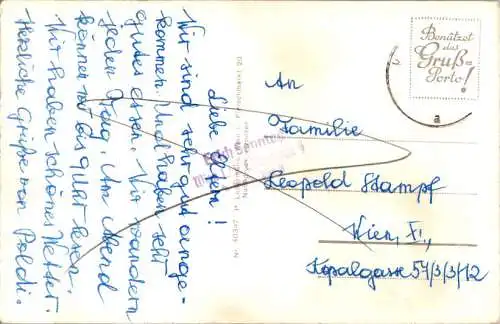 Liebe Eltern!
Wir sind sehr gut ange-
kommen. Und haben sehr
gutes essen. Wir wandern
jeden Tag. Am Abend
können wir das gut lesen
Wir haben schönes Wetter.
Herzliche Grüße von Poldi.
Benützet
das
Gruß=
Porto!
An
Familie
Leopold Stampf
Wien, XI.,
Kopalgasse 57/3/3/12